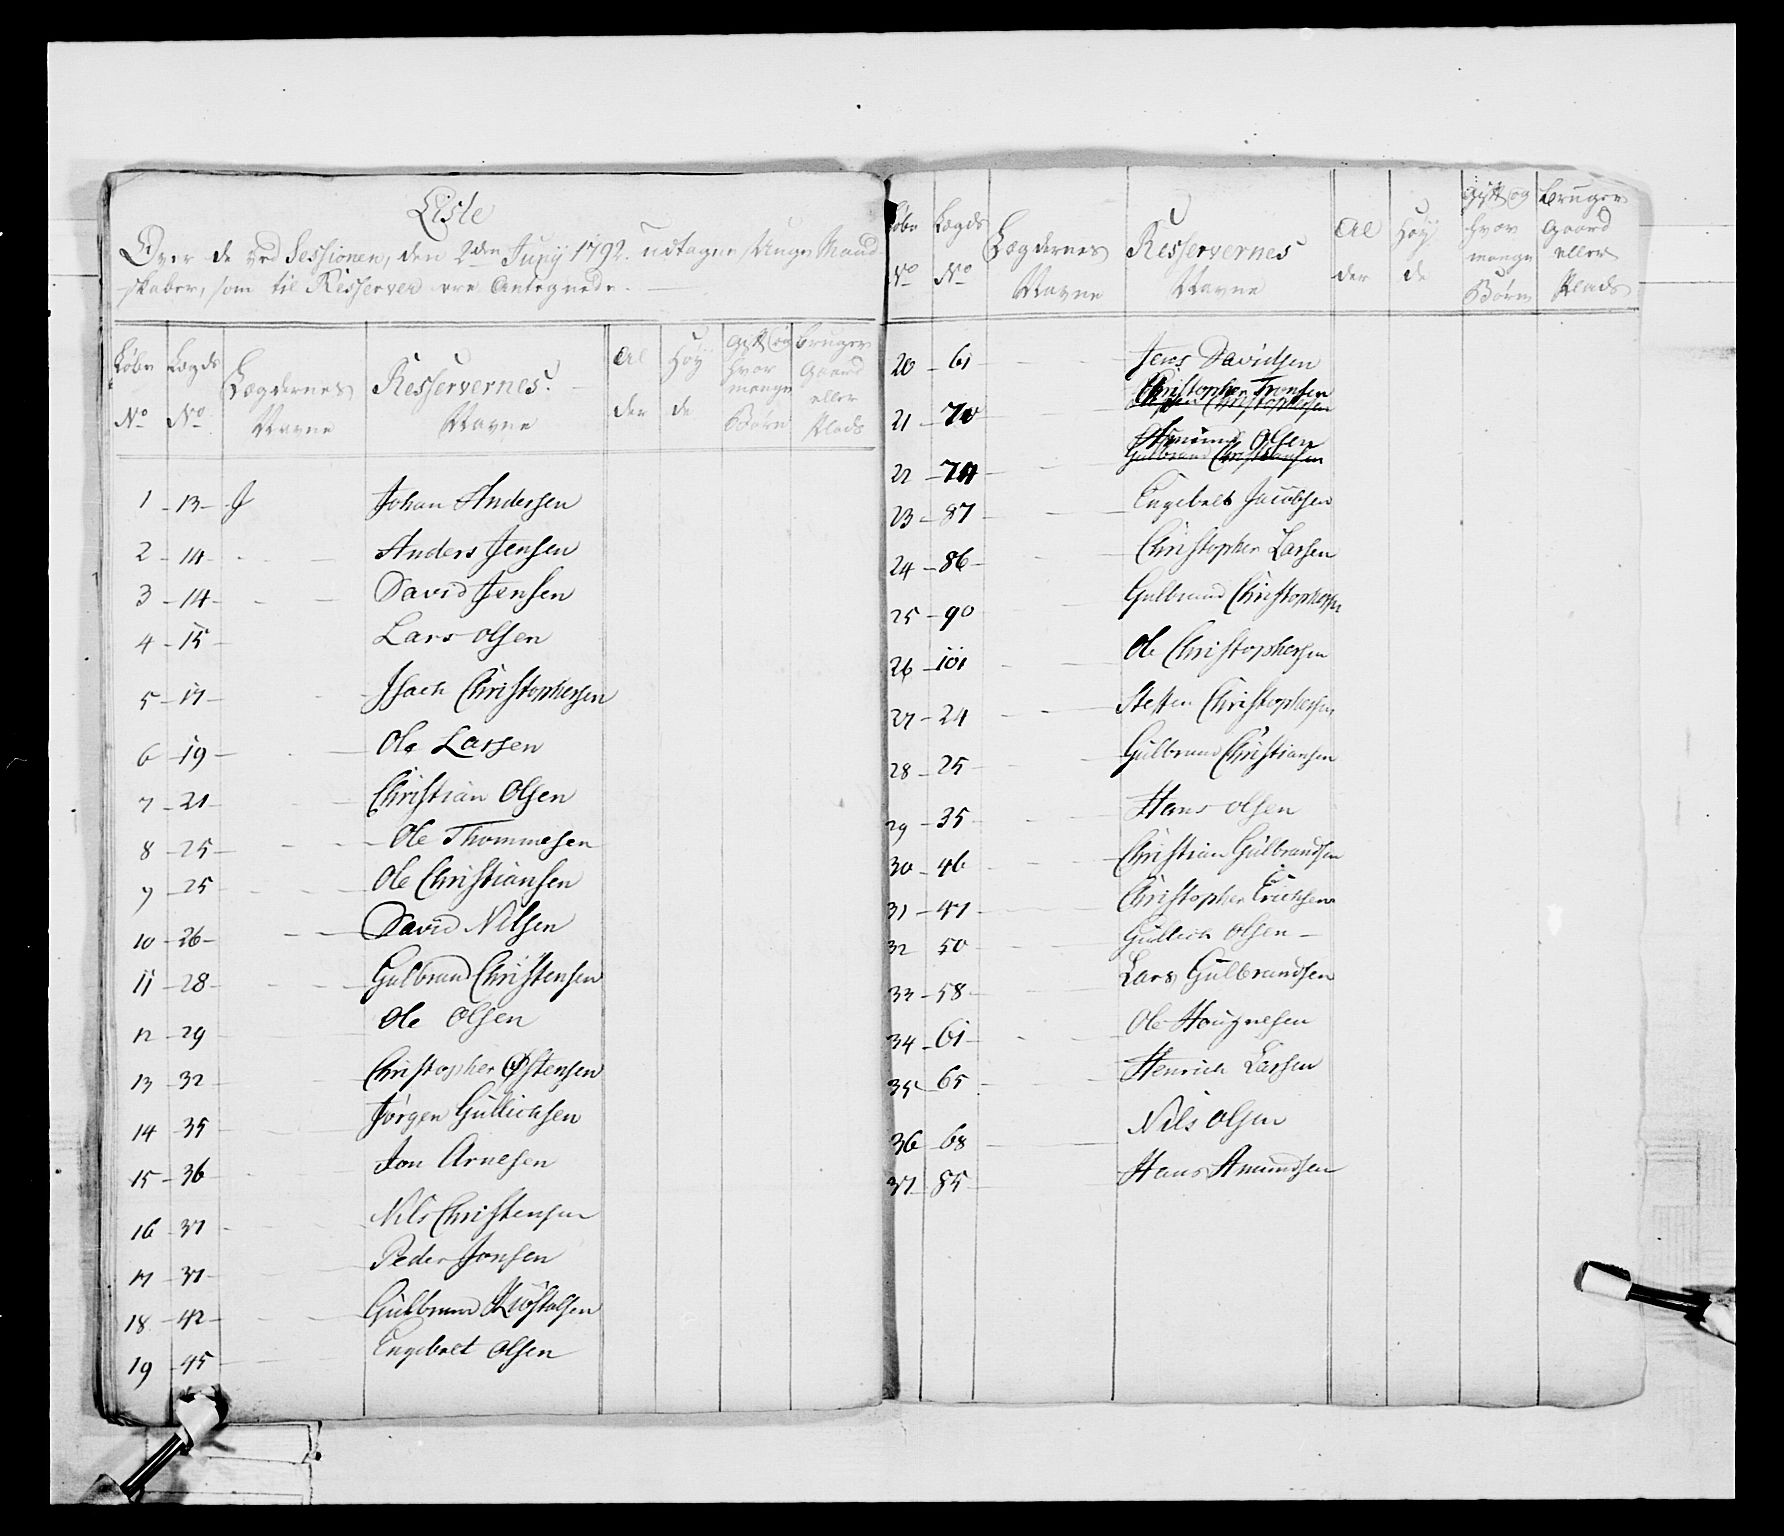 Liste
Over de ved Sessionen, den 2den Junij 1792. udtagne Unge Mand
skaber, som til Resserver ere Antegnede.
Løbe Lægds Lægdernes Resservernes Al Høy Gift og Bruger
No No Navne Navne der de hvor mange Børn Gaard eller Plads
1 - 13 - J Johan Andersen
2 - 14 - Anders Jensen
3 - 14 - David Jensen
4 - 15 - Lars Olsen
5 - 17 - Isach Christophersen
6 - 19 - Ole Larsen
7 - 21 - Christian Olsen
8 - 25 - Ole Thommesen
9 - 25 - Ole Christiansen
10 - 26 - David Nilsen
11 - 28 - Gulbrand Christensen
12 - 29 Ole Olsen
13 - 32 - Christopher Østensen
14 - 35 - Jørgen Gullichsen
15 - 36 - Jon Arnesen
16 - 37 - Nils Christensen
17 - 37 - Peder Jonsen
18 - 42 - Gulbrand
19 - 45 - Engebret Olsen
Løbe Lægds Lægdernes Resservernes Al Høy Gift og Bruger
No No Navne Navne der de hvor mange Børn Gaard eller Plads
20 - 61 Jens Davidsen
Christopher Tronsen
21 - 70 Christophersen
Amund Olsen
22 - 74 Gulbrand Christiansen
23 - 87 - Engebret Jacobsen
24 - 86 - Christopher Larsen
25 - 90 Gulbrand Christophersen
26 - 101 Ole Christophersen
27 - 24 Steffen Christophersen
28 - 25 - Gulbrand Christiansen
29 - 35 - Hans Olsen
30 - 46 - Christian Gulbrandsen
31 - 47 - Christopher Erichsen
32 50 - Gullich Olsen
33 - 58 - Lars Gulbrandsen
34 - 61 - Ole
35 - 65 - Henrich Larsen
36 - 68 - Nils Olsen
37 - 85 - Hans Amundsen